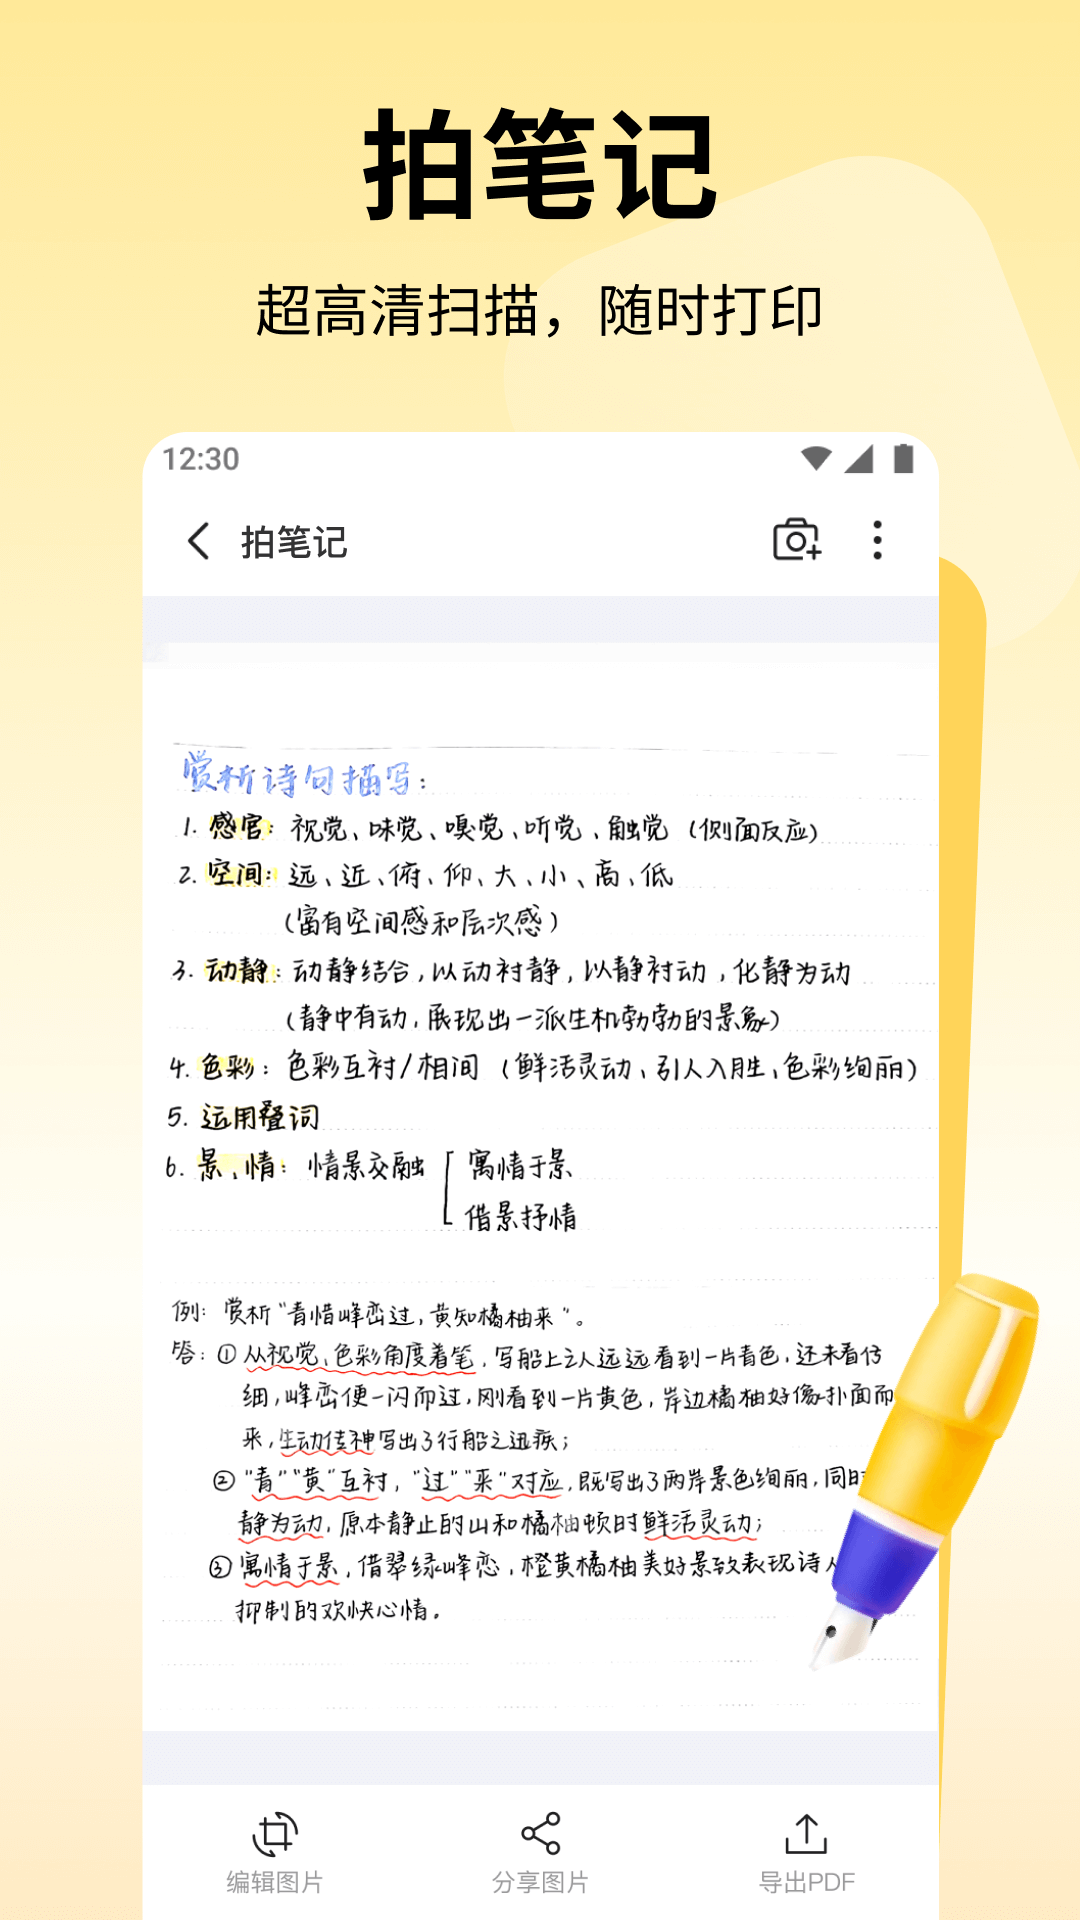 拍笔记
超高清扫描，随时打印
12:30
拍笔记
赏析诗句描写：
1. 感官：视觉、味觉、嗅觉、听觉、触觉（侧面反应）
2. 空间：远、近、俯、仰、大、小、高、低
（富有空间感和层次感）
3. 动静：动静结合，以动衬静，以静衬动，化静为动
（静中有动，展现出一派生机勃勃的景象）
4. 色彩：色彩互衬/相间（鲜活灵动、引人入胜、色彩绚丽）
5. 运用叠词
6. 景、情：情景交融 寓情于景
借景抒情
例：赏析“青惜峰峦过，黄知橘柚来”。
答：①从视觉、色彩角度着笔，写船上之人远远看到一片青色，还未看仔
细，峰峦便一闪而过，刚看到一片黄色，岸边橘柚好像扑面而
来，生动传神写出了行船之迅疾；
②“青”“黄”互衬，“过”“来”对应，既写出了两岸景色绚丽，同时
静为动，原本静止的山和橘柚顿时鲜活灵动；
③寓情于景，借翠绿峰峦，橙黄橘柚美好景致表现诗人
抑制的欢快心情。
编辑图片
分享图片
导出PDF